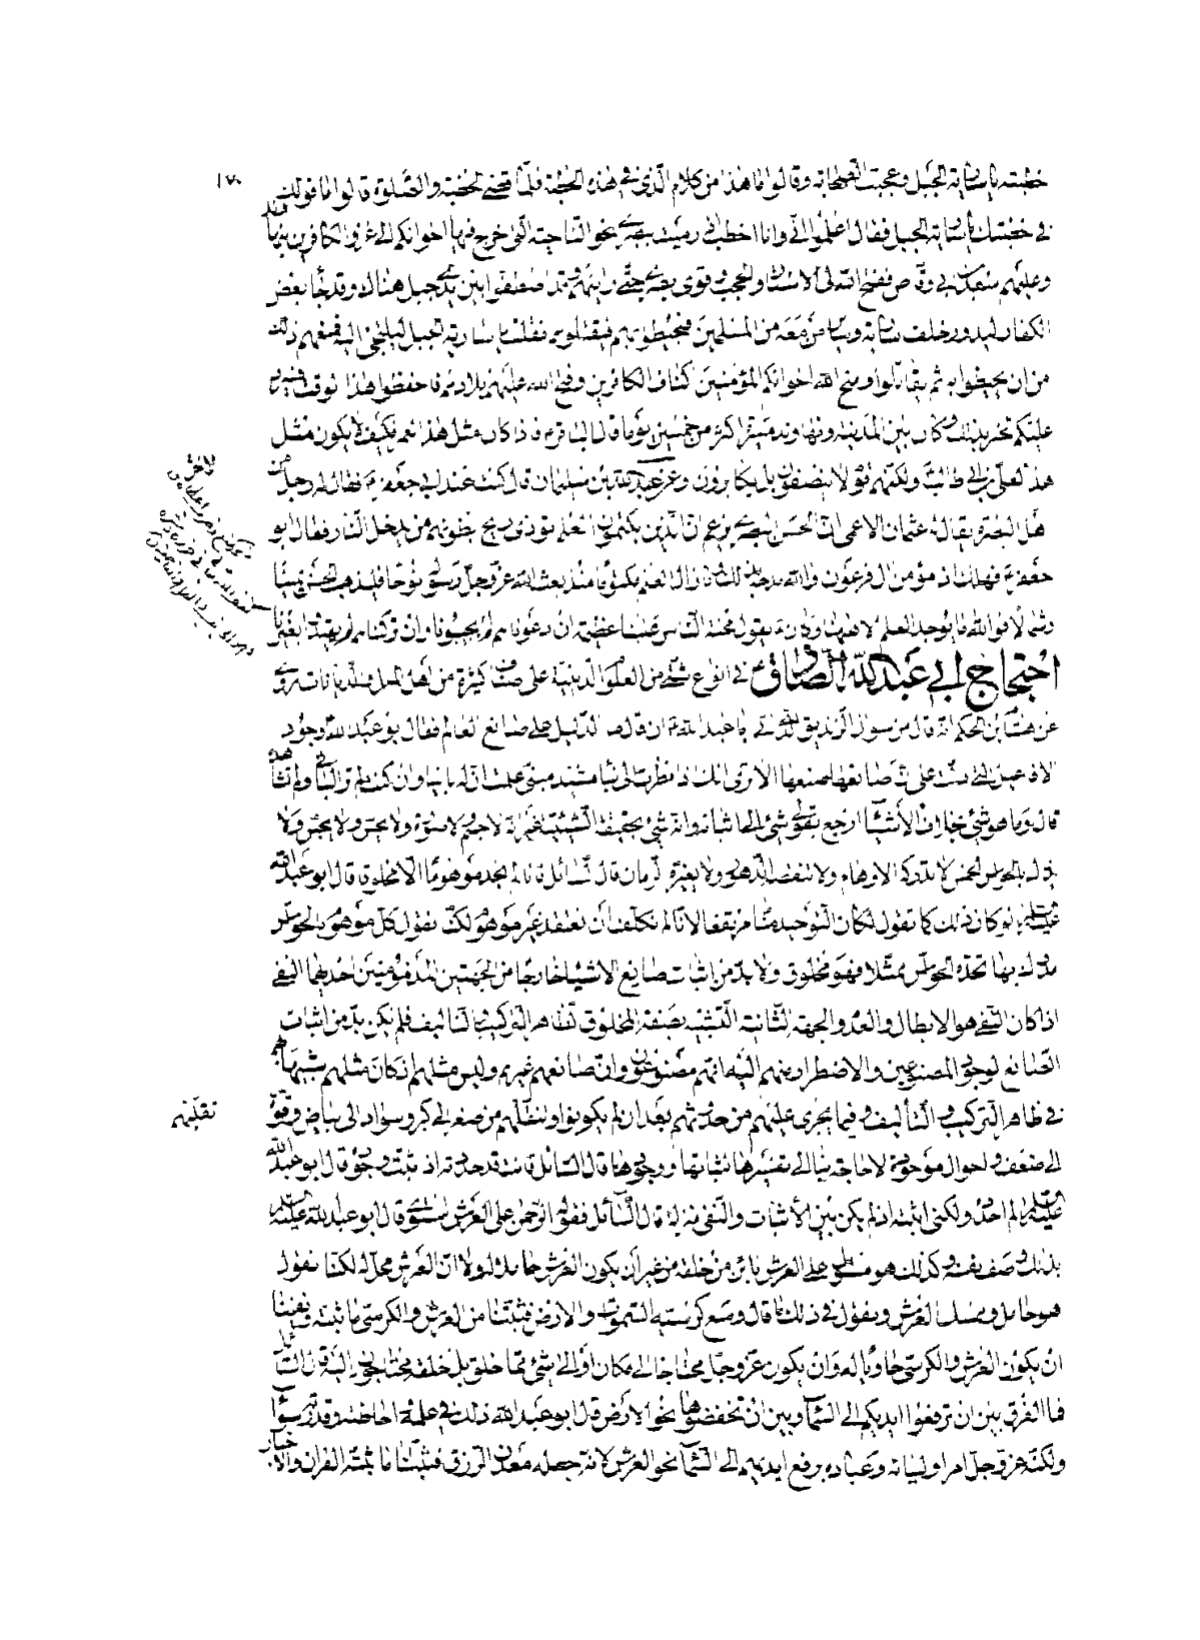 ١٧٠
خطبته يا سارية الجبل وعجبت الصحابة وقالوا ما هذا من كلام الذي في هذه الخطبة فلما قضى الخطبة والصلوة قالوا ما قولك
في خطبتك يا سارية الجبل فقال اعلموا اني وانا اخطب اذ رميت ببصري نحو الناحية التي خرج فيها اخوانكم الى غزو الكافرين بنهاوند
وعليهم سعد بن ابي وقاص ففتح الله لي الاستار والحجب وقوى بصري حتى رايتهم وقد اصطفوا بين يدي جبل هناك وقد جاء بعض
الكفار ليدور خلف سارية وسائر من معه من المسلمين فيحيطوا بهم فيقتلوهم فقلت يا سارية الجبل ليلتجئ اليه فيمنعهم ذلك
من ان يحيطوا به ثم يقاتلوا ومنح الله اخوانكم المؤمنين اكتاف الكافرين وفتح الله عليهم بلادهم فاحفظوا هذا الوقت فسيرد
عليكم الخبر بذلك وكان بين المدينة ونهاوند مسيرة اكثر من خمسين يوما قال الباقر ع فاذا كان مثل هذا لعمر فكيف لا يكون مثل
هذا لعلي بن ابي طالب ع ولكنهم قوم لا ينصفون بل يكابرون وعن عبد الله بن سليمان قال كنت عند ابي جعفر ع فقال له رجل من
اهل البصرة يقال له عثمان الاعمى ان الحسن البصري يزعم ان الذين يكتمون العلم تؤذي ريح بطونهم من يدخل النار فقال ابو
جعفر ع فهلك اذا مؤمن ال فرعون والله مدحه بذلك وما زال العلم مكتوما منذ بعث الله عز وجل رسوله نوحا فليذهب الحسن يمينا
وشمالا فوالله ما يوجد العلم الا ههنا وكان ع يقول محنة الناس علينا عظيمة ان دعوناهم لم يجيبونا وان تركناهم لم يهتدوا بغيرنا
احتجاج ابي عبد الله الصادق ع في انواع شتى من العلوم الدينية على اصناف كثيرة من اهل الملل والديانات روي
عن هشام بن الحكم انه قال من سؤال الزنديق الذي اتى ابا عبد الله ع ان قال ما الدليل على صانع العالم فقال ابو عبد الله وجود
الافاعيل التي دلت على ان صانعها صنعها الا ترى انك اذا نظرت الى بناء مشيد مبني علمت ان له بانيا وان كنت لم تر الباني ولم تشاهده
قال وما هو قال شيء بخلاف الاشياء ارجع بقولي شيء الى اثباته وانه شيء بحقيقة الشيئية غير انه لا جسم ولا صورة ولا يحس ولا يجس ولا
يدرك بالحواس الخمس لا تدركه الاوهام ولا تنقصه الدهور ولا يغيره الزمان قال السائل فانا لم نجد موهوما الا مخلوقا قال ابو عبد الله
عليه السلام لو كان ذلك كما تقول لكان التوحيد منا مرتفعا لانا لم نكلف ان نعتقد غير موهوم لكنا نقول كل موهوم بالحواس
مدرك بها تحده الحواس ممثلا فهو مخلوق ولا بد من اثبات صانع الاشياء خارجا من الجهتين المذمومتين احدهما النفي
اذا كان النفي هو الابطال والعدم والجهة الثانية التشبيه بصفة المخلوق الظاهر التركيب والتاليف فلم يكن بد من اثبات
الصانع لوجود المصنوعين والاضطرار منهم اليه انهم مصنوعون وان صانعهم غيرهم وليس مثلهم اذ كان مثلهم شبيها بهم
في ظاهر التركيب والتأليف وفيما يجرى عليهم من حدثهم بعد ان لم يكونوا وتنقلهم من صغر الى كبر وسواد الى بياض وقوة
الى ضعف واحوال موجودة لا حاجة بنا الى تفسيرها لثباتها ووجودها قال السائل فانت قد حددته اذ اثبت وجوده قال ابو عبد الله
عليه السلام لم احدده ولكني اثبته اذ لم يكن بين الاثبات والنفي منزلة قال السائل فقوله الرحمن على العرش استوى قال ابو عبد الله عليه السلام
بذلك وصف نفسه وكذلك هو مستول على العرش بائن من خلقه من غير ان يكون العرش حاملا له ولا ان العرش محل له لكنا نقول
هو حامل وممسك العرش ونقول في ذلك ما قال وسع كرسيه السموات والارض فثبتنا من العرش والكرسي ما ثبته ونفينا
ان يكون العرش والكرسي حاويا له وان يكون عز وجل محتاجا الى مكان او الى شيء مما خلق بل خلقه محتاجون اليه قال السائل
فما الفرق بين ان ترفعوا ايديكم الى السماء وبين ان تخفضوها نحو الارض قال ابو عبد الله ذلك في علمه واحاطته وقدرته سواء
ولكنه عز وجل امر اوليائه وعباده برفع ايديهم الى السماء نحو العرش لانه جعله معدن الرزق فثبتنا ما ثبته القران والاخبار